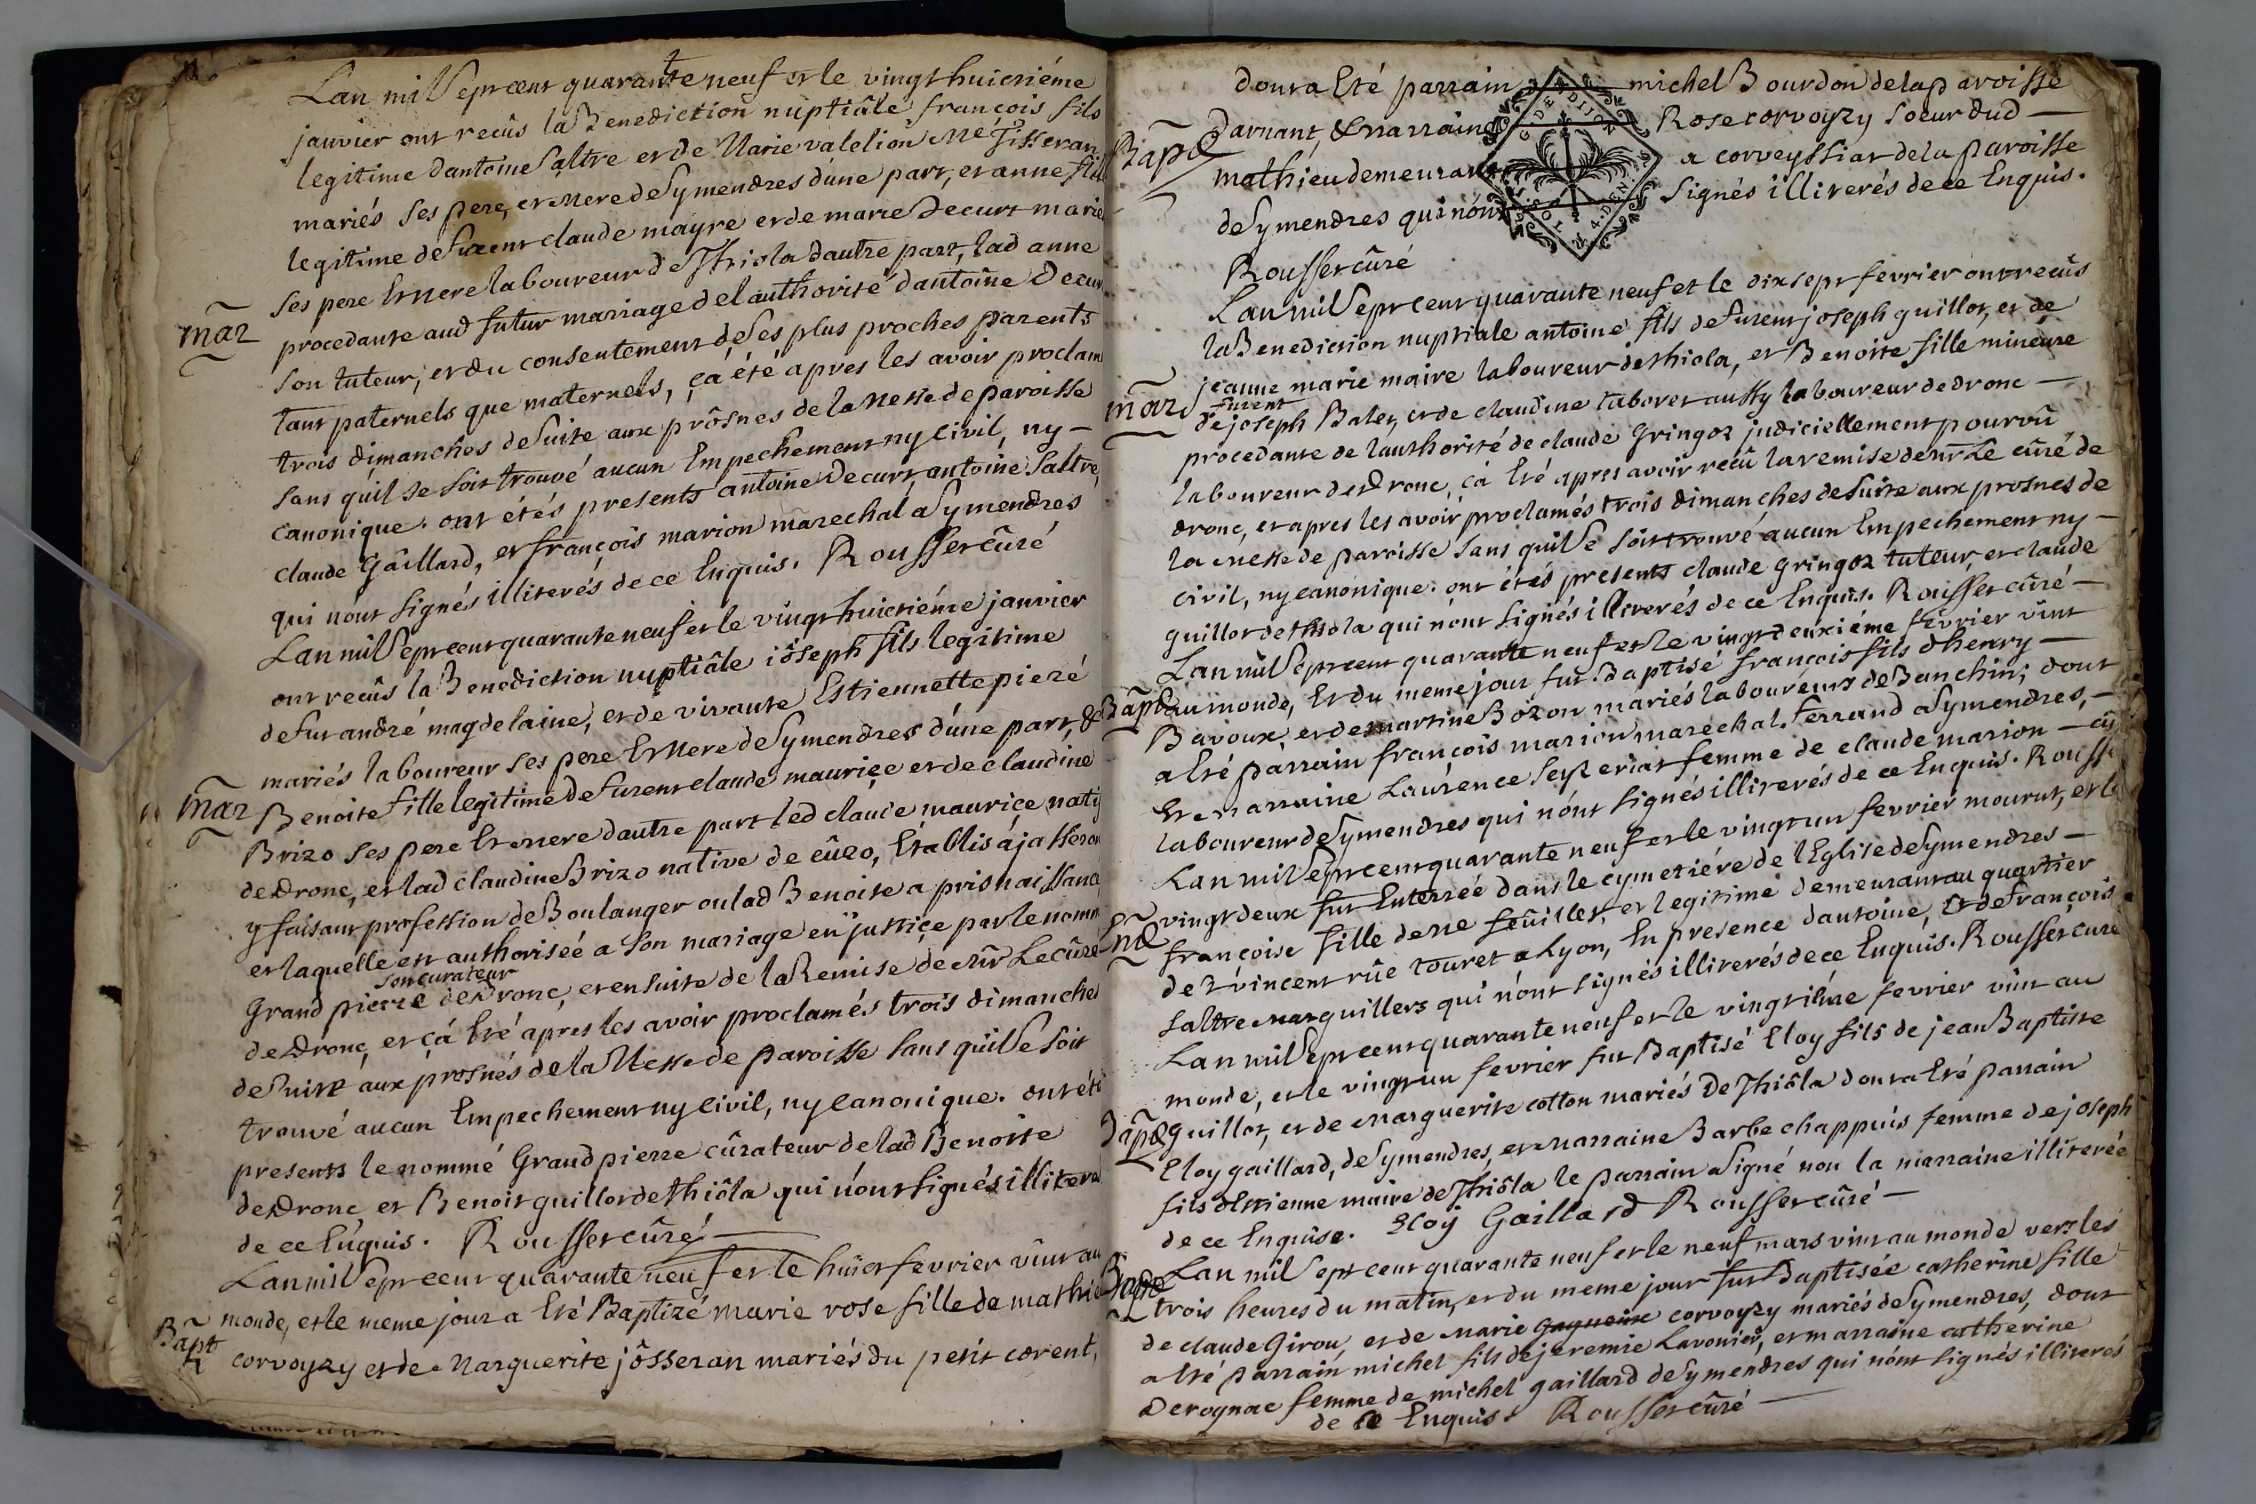 Lan mil Sept cent quarante neuf et le vingt huictiéme
janvier ont recûs la Benediction nuptiâle françois fils
legitime dantoine Saltre et de Marie valelion Me Tisseran
mariés ses pere, et Mere de Symendres dune part, et anne fille
legitime de furent claude mayre et de marie Decurt mariés
ses pere Et Mere laboureur de Thiola dautre part, lad anne
mar
procedante aud futur mariage de lauthorité dantoine Decurt
son tuteur, et du consentement de ses plus proches parents
tant paternels que maternels, çá été apres les avoir proclamé
trois dimanches de suite aux prôsnes de la Messe de paroisse
sans quil se soit trouvé aucun Empechement ny civil, ny –
canonique. ont étés presents antoine Decurt, antoine Saltre,
claude Gâillard, et françois marion marechal a Symendres
qui nont signés illiterés de ce Enquis. Rousset cûré
Lan mil Sept cent quarante neuf et le vingt huictiéme janvier
ont recûs la Benediction nuptiâle iôseph fils legitime
de fut andré magdelaine, et de vivante Estiennette pieré
mariés laboureur ses pere Et Mere de Symendres dune part, &
mar
Benoite fille legitime de furent claude maurice et de claudine
Brizo ses pere Et Mere dautre part led claude maurice natif
de Dronc, et lad claudine Brizo native de cûzo, Etablis á jasseron
y faisant profession de Boulanger ou lad Benoite a pris naissance
et laquelle est authorisée a son mariage en justice par le nommé
son curateur
Grand pierre de Dronc, et ensuite de la Remise de Mr Le cûré
de Dronc, et çá Eté apres les avoir proclamés trois dimanches
de suite aux prosnés de la Messe de paroisse sans quil Se soit
trouvé aucun Empechement ny civil, ny canonique. ont étés
presents le nommé Grand pierre cûrateur de lad Benoite
de Dronc et Benoit guillot de thiôla qui nont signés illiterés
de ce Enquis. Rousset cûré
Lan mil Sept cent quarante neuf et le huict fevrier vint au
monde, et le meme jour a Eté Baptizé marie rose fille de mathieu
Bapt
corvoyzy et de Marguerite jôsseran mariés du petit corent,
dont a Eté parrain michel Bourdon de la paroisse
Bapt
Darnant, & marraine Rose corvoyzy soeur dud –
mathieu demeurant a corveyssiat de la paroisse
de Symendres qui nont signés illiterés de ce Enquis.
G. DE DIJON
1 SOL 4 DEN
Rousset cûré
Lan mil Sept cent quarante neuf et le dix sept fevrier ont recûs
la Benediction nuptiale antoine fils de furent joseph guillot, et de
jeanne marie maire laboureur de thiola, et Benoite fille mineure
mar
furent
de joseph Balet, et de claudine taboret aussy laboureur de dronc –
procedante de lauthorité de claude Gringoz judiciellement pourvû
laboureur de Dronc, çá Eté apres avoir recû la remise de mr Le cûré de
dronc, et apres les avoir proclamés trois dimanches de suite aux prosnes de
la Messe de paroisse sans quil Se soit trouvé aucun Empechement ny –
civil, ny canonique. ont étés presents claude gringoz tuteur, et claude
guillot de thiola qui nont signés illiterés de ce Enquis. Rousset cûré –
Lan mil Sept cent quarante neuf et le vingt deuxiéme fevrier vint
Bapt
au monde, Et du meme jour fut Baptisé françois fils dhenry –
Bavoux, et de martine Bozon mariés laboureurs de Banchin; dont
a Eté parrain françois marion marechal ferrand a Symendres, –
Et marraine Laurence Seyzeriat femme de claude marion –
laboureur de Symendres qui nont signés illiterés de ce Enquis. Rousset
Lan mil Sept cent quarante neuf et le vingt un fevrier mourut, et le
vingt deux fut Enterrée dans le cymetiére de lEglise de Symendres –
françoise fille de Me feuillet, et legitime demeurant au quartier
de St vincent rûe touret a Lyon, En presence dantoine, Et de françois
Saltre Marguillers qui nont signés illiterés de ce Enquis. Rousset cûré
Lan mil Sept cent quarante neuf et le vingtiéme fevrier vint au
monde, et le vingt un fevrier fut Baptisé Eloy fils de jean Baptiste
Bapt
guillot, et de Marguerite cotton mariés De Thiôla dont a Eté parrain
Eloy gaillard, de Symendres, et Marraine Barbe chappuis femme de joseph
fils dEstienne maire de Thiôla le parrain a Signé non la marraine illiterée
de ce Enquise. Eloy Gaillard Rousset cûré –
Lan mil Sept cent quarante neuf et le neuf mars vint au monde vers les
Bapt
trois heures du matin, et du meme jour fut Baptisée catherine fille
de claude Girou, et de Marie corvoyzy mariés de Symendres, dont
a Eté parrain michel fils de jeremie Lavonier, et marraine catherine
Derognac femme de michel gaillard de Symendres qui nont signés illiterés
de ce Enquis. Rousset cûré –